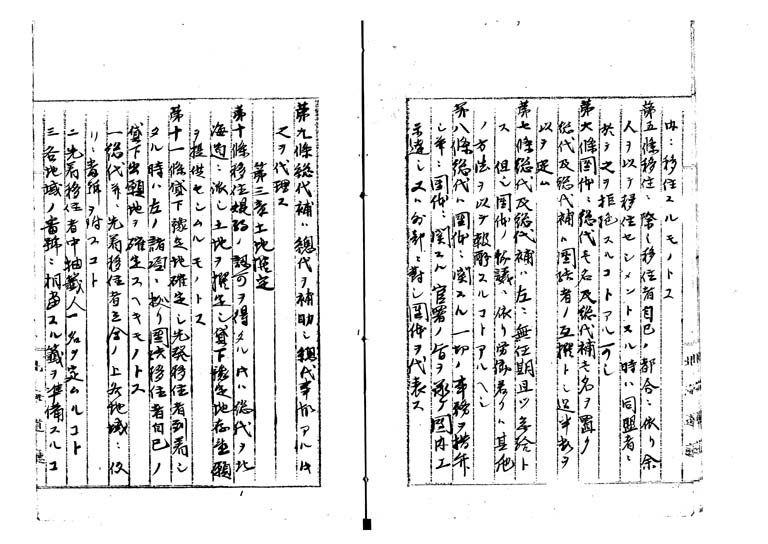 内ニ移住スルモノトス
第五條移住ニ際シ移住者自己ノ都合ニ依リ余
人ヲ以テ移住セシメントスル時ハ同盟者ニ
於テ之ヲ拒絶スルコトアル可シ
第六條団体ニ総代壱名及総代補壱名ヲ置ク
総代及総代補ハ団結者ノ互撰トシ過半数ヲ
以テ定ム
第七條総代及総代補ハ左ニ無任期且ツ無給ト
ス但シ団体ノ協議ニ依リ労働若クハ其他
ノ方法ヲ以テ報酬スルコトアルヘシ
第八條総代ハ団体ニ関スル一切ノ事務ヲ措弁
シ并ニ団体ニ関スル官署ノ旨ヲ承ケ団内エ
示達シ又ハ外部ニ對シ団体ヲ代表ス
第九條総代補ハ総代ヲ補助シ総代事故アル時
之ヲ代理ス
第三章土地推定
第十條移住規約ノ認可ヲ得タル時ハ総代ヲ北
海道ニ派シ土地ヲ撰定シ貸下豫定地存置願
ヲ提供セシムルモノトス
第十一條貸下豫定地確定シ先発移住者到着シ
タル時ハ左ノ諸項ニ拠リ団結移住者自己ノ
貸下出願地ヲ確定スヘキモノトス
一総代ハ先着移住者立会ノ上各地域ニ仮
リニ番号ヲ附スコト
二先着移住者中抽籤人一名ヲ定ムルコト
三各地域ノ番号ニ相当スル籤ヲ準備スルコ